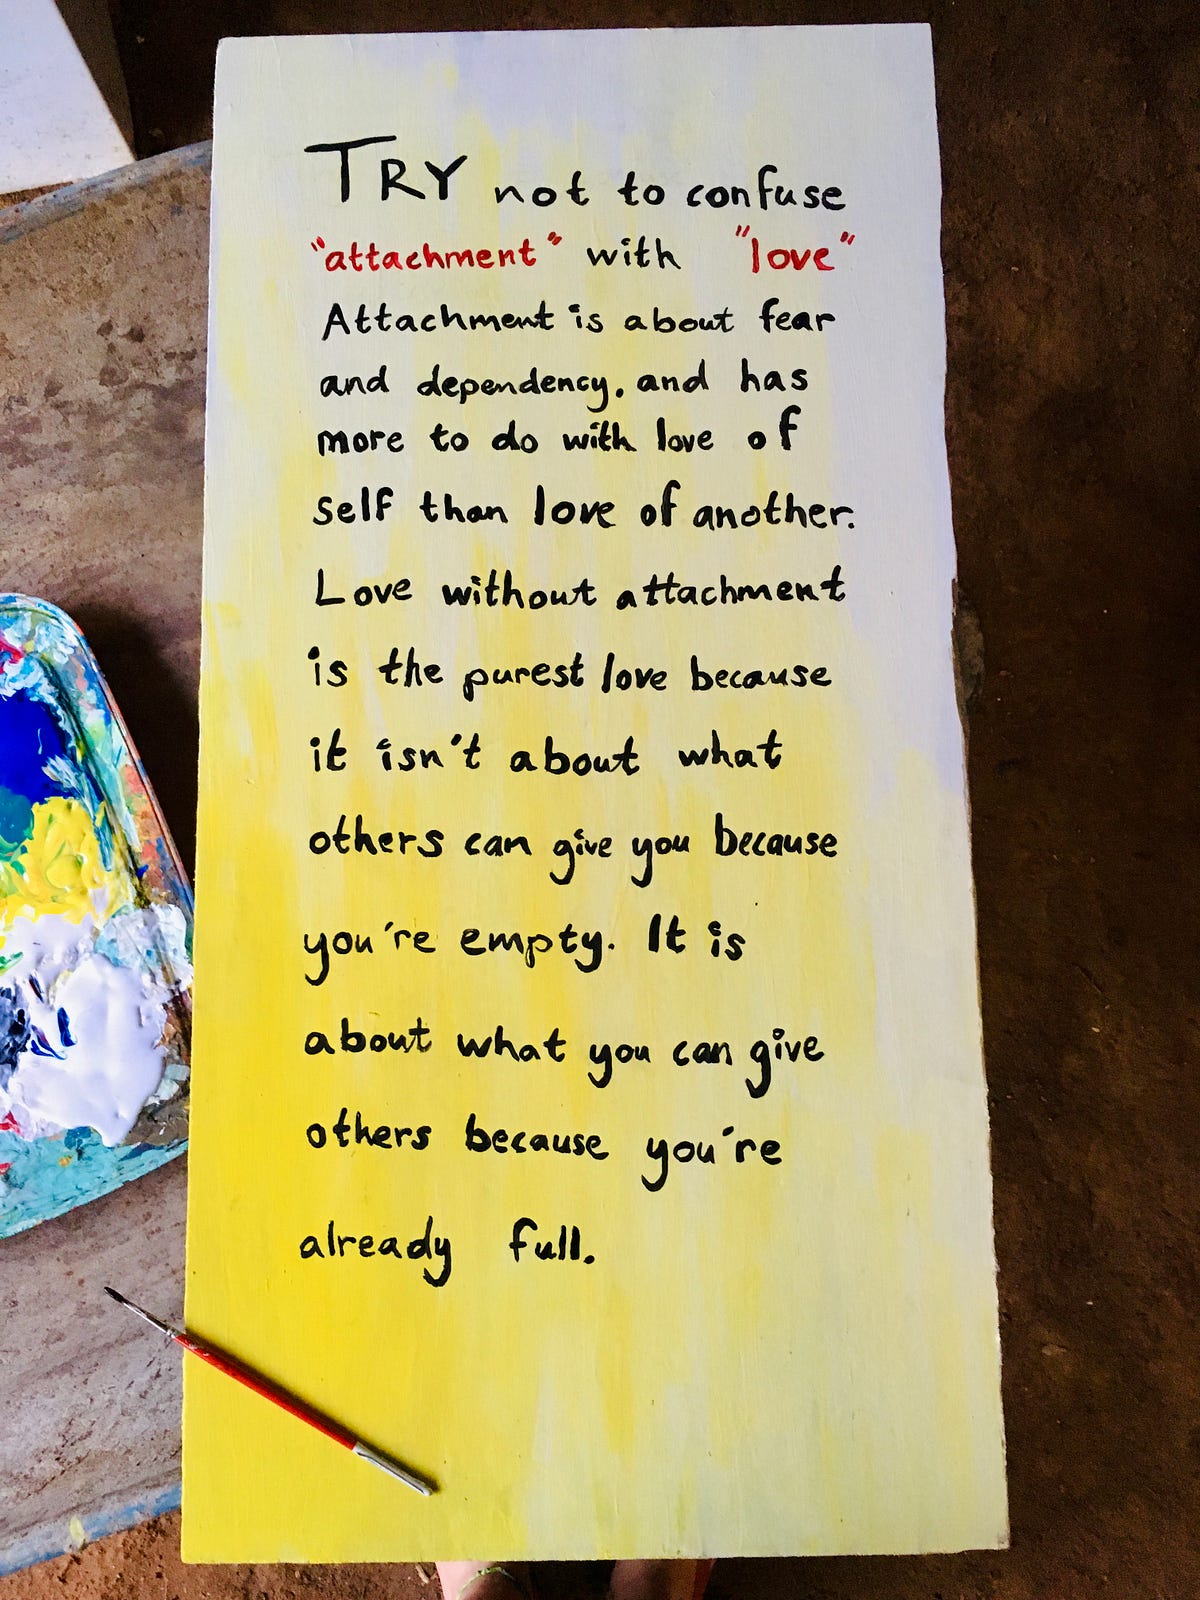 TRY not to confuse
"attachment" with "love"
Attachment is about fear
and dependency, and has
more to do with love of
self than love of another.
Love without attachment
is the purest love because
it isn't about what
others can give you because
you're empty. It is
about what you can give
others because you're
already full.